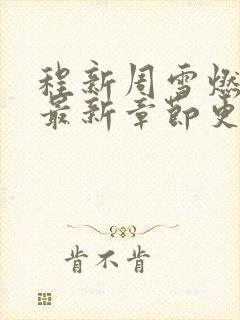 程新周雪燃
最新章节更
肯不肯